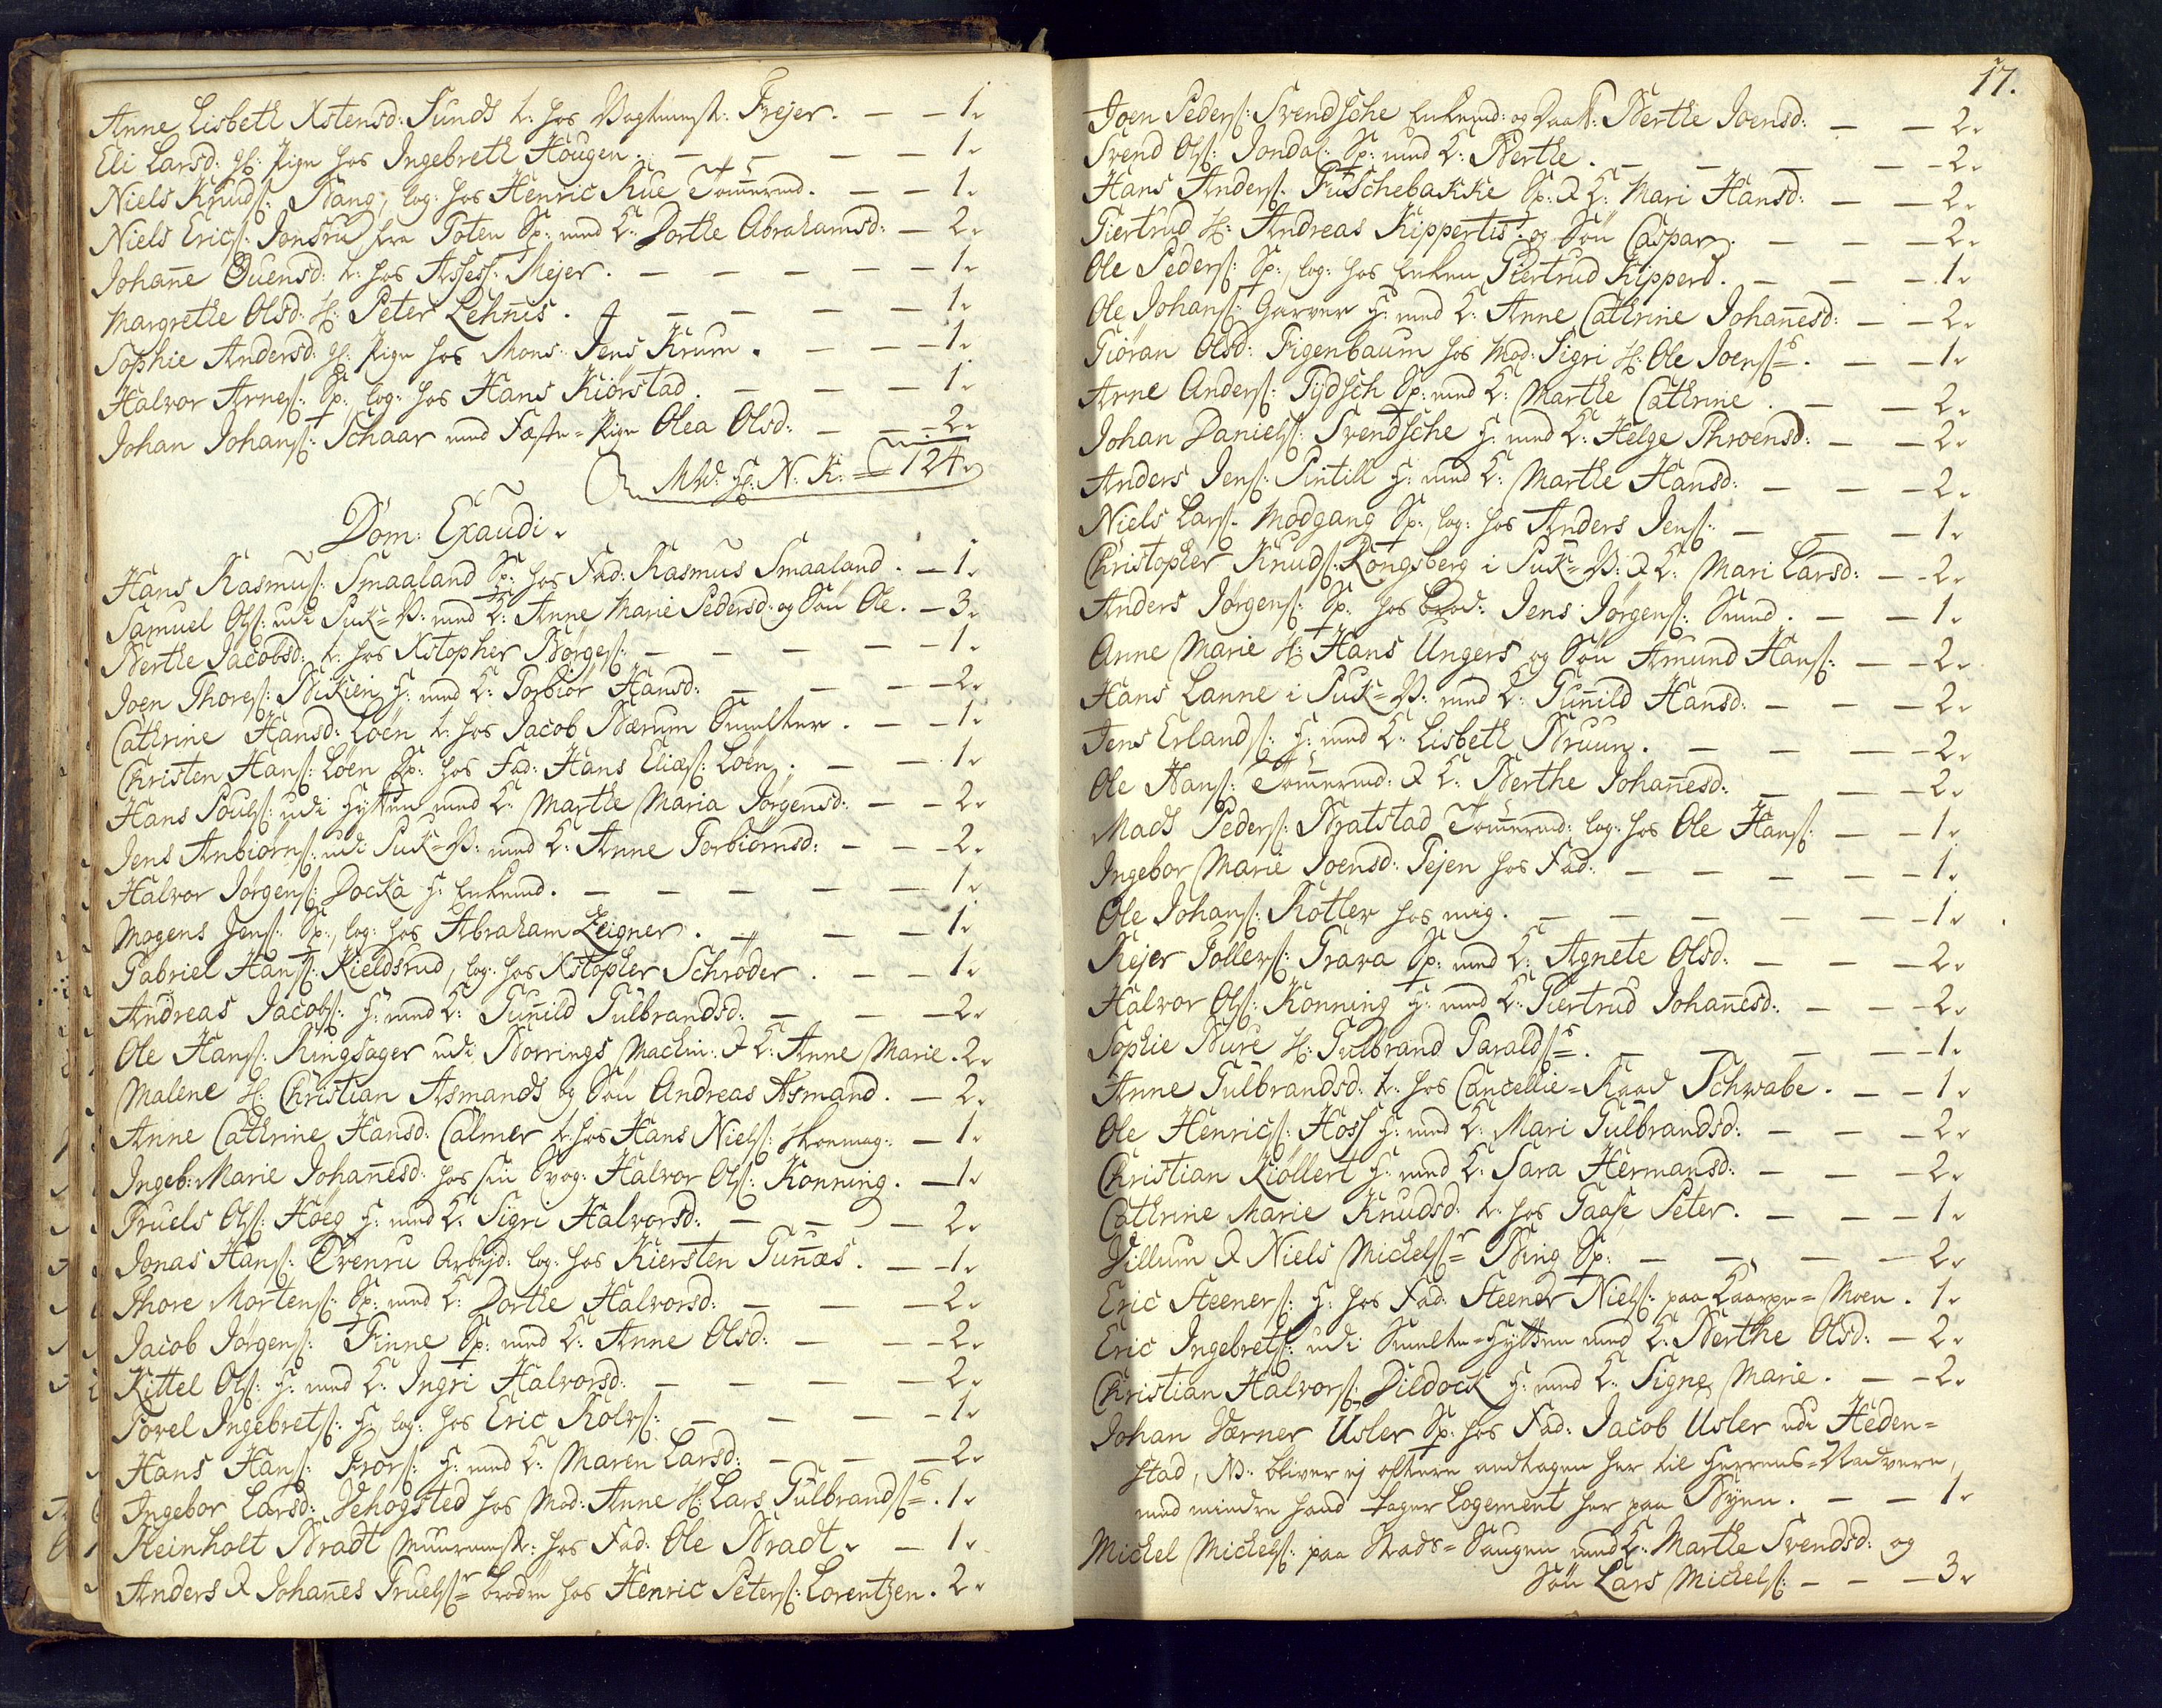 Anne Lisbeth Xstensd: Sunds t: hos Vagtmest: Frejer. — — 1.
Eli Larsd: gl: Pige hos Ingebreth Hougen. — — — — 1.
Niels Knuds: Bang, log: hos Henric Rue Tømermd. — — 1.
Niels Erics: Jonsrud fra Toten Sp: med K: Dorthe Abrahamsd: — 2.
Johanne Svensd: t: hos Assess: Mejer. — — — — — 1.
Margrethe Olsd: H: Peter Lehnis. — — — — 1.
Sophie Andersd: gl: Pige hos Mons: Jens Krum. — — — 1.
Halvor Arnes: Sp: log: hos Hans Kiørstad. — — — 1.
Johan Johans: Schaar med Fæste-Pige Olea Olsd: — — 2.
N. K: = 124.
Dom: Exaudi.
Hans Rasmus: Smaaland Sp: hos Fad: Rasmus Smaaland. — 1.
Samuel Ols: udi Puk-V: med K: Anne Marie Pedersd: og Søn Ole. — 3.
Berthe Jacobsd: t: hos Xstopher Børges: — — — — 1.
Joen Thores: Bikien H: med K: Torbiør Hansd: — — — 2.
Cathrine Hansd: Løen t: hos Jacob Bærum Smelter. — — 1.
Christen Hans: Løen Sp: hos Fad: Hans Elias: Løen. — — 1.
Hans Pouls: udi Hytten med K: Marthe Maria Jørgensd: — — 2.
Jens Anbiørns: udi Puk-V: med K: Anne Torbiørnsd: — — 2.
Halvor Jørgens: Docka H: Enkemd. — — — — — 1.
Mogens Jens: Sp:, log: hos Abraham Zeigner. — — — 1.
Gabriel Hans: Kieldsrud, log: hos Xstopher Schrøder. — — 1.
Andreas Jacobs: H: med K: Gunild Gulbrandsd: — — — 2.
Ole Hans: Ringsager udi Borrings Machin: & K: Anne Marie. 2.
Malene H: Christian Asmands og Søn Andreas Asmand. — 2.
Anne Cathrine Hansd: Calmer t: hos Hans Niels: Skomag: — 1.
Ingeb: Marie Johanesd: hos sin Svog: Halvor Ols: Konning. — 1.
Truels Ols: Høeg H: med K: Sigri Halvorsd: — — — 2.
Jonas Hans: Ovenru Arbejd: log: hos Kiersten Gunæs. — — 1.
Thore Mortens: Sp: med K: Dorthe Halvorsd: — — — 2.
Jacob Jørgens: Finne Sp: med K: Anne Olsd: — — — 2.
Kittel Ols: H: med K: Ingri Halvorsd: — — — — 2.
Povel Ingebrets: H:, log: hos Eric Rolvs: — — — — 1.
Hans Hans: Frors: H: med K: Maren Larsd: — — — 2.
Ingebor Larsd: Vehogsted hos Mod: Anne H: Lars Gulbrands:s. 1.
Reinholt Bradt Muurmest: hos Fad: Ole Bradt. — 1.
Anders & Johanes Truels:r brødre hos Henric Peters: Lorentzen. 2.
17.
Joen Peders: Svendsche Enkemd: og Daat: Berthe Joensd: — — 2.
Svend Ols: Jondal: Sp: med K: Berthe. — — — — 2.
Hans Anders: Fuschebakke Sp: & K: Mari Hansd: — — 2.
Giertrud H: Andreas Kippertis og Søn Caspar. — — — 2.
Ole Peders: Sp:, log: hos Enken Giertrud Kippers. — — — 1.
Ole Johans: Garver H: med K: Anne Cathrine Johanesd: — — 2.
Giøran Olsd: Figenbaum hos Mod: Sigri H: Ole Joens:s. — — 1.
Arne Anders: Tydsch Sp: med K: Marthe Cathrine. — — 2.
Johan Daniels: Svendsche H: med K: Helge Throensd: — — 2.
Anders Jens: Pintill H: med K: Marthe Hansd: — — — 2.
Niels Lars: Modgang Sp:, log: hos Anders Jens: — — — 1.
Christopher Knuds: Kongsberg i Puk-V: & K: Mari Larsd: — 2.
Anders Jørgens: Sp: hos Brod: Jens Jørgens: Smed. — — 1.
Anne Marie H: Hans Ungers og Søn Amund Hans: — — 2.
Hans Lanne i Puk-V: med K: Gunild Hansd: — — — 2.
Jens Erlands: H: med K: Lisbeth Bruun. — — — — 2.
Ole Hans: Tømermd: & K: Berthe Johanesd: — — — 2.
Mads Peders: Bratstad Tømermd: log: hos Ole Hans: — — 1.
Ingebor Marie Joensd: Tejen hos Fad: — — — — — 1.
Ole Johans: Kotler hos mig. — — — — — — 1.
Rejer Tollers: Grava Sp: med K: Agnete Olsd: — — — 2.
Halvor Ols: Konning H: med K: Giertrud Johanesd: — — — 2.
Sophie Bure H: Gulbrand Taralds:s. — — — — 1.
Anne Gulbrandsd: t: hos Cancellie-Raad Schwabe. — — 1.
Ole Henrics: Hoss H: med K: Mari Gulbrandsd: — — — 2.
Christian Kiøllert H: med K: Sara Hermansd: — — — 2.
Cathrine Marie Knudsd: t: hos Gaase Peter. — — — 1.
Villum & Niels Michels:r Bing Sp: — — — — 2.
Eric Steeners: H: hos Fad: Steener Niels: paa Moen. 1.
Eric Ingebrets: udi Smelte-Hytten med K: Berthe Olsd: — 2.
Christian Halvors: Dildock H: med K: Signe Marie. — — 2.
Johan Værner Usler Sp: hos Fad: Jacob Usler udi Heden-
stad, NB. bliver ej oftere antagen her til Herrens-Nadvere,
med mindre hand tager Logement her paa Byen. — — 1.
Michel Michels: paa Stads-Saugen med K: Marthe Svendsd: og
Søn Lars Michels: — — — 3.